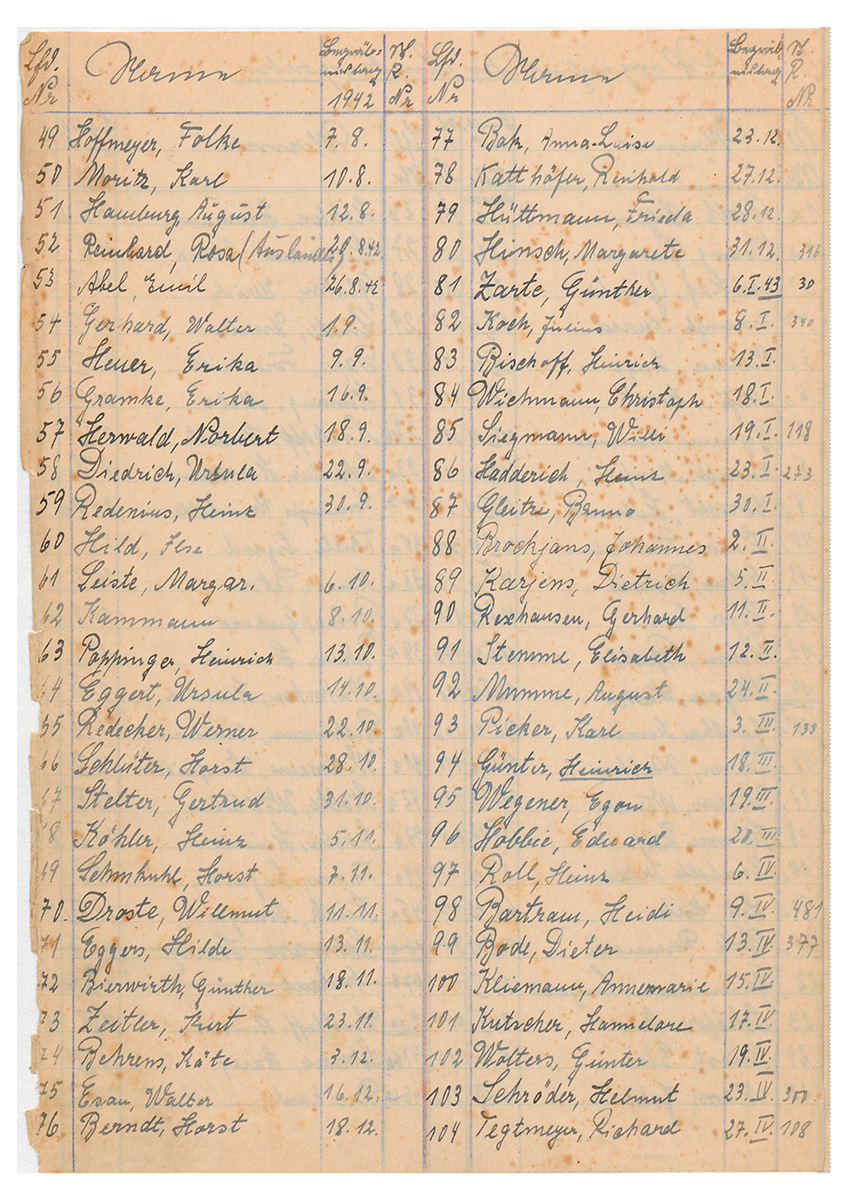 Lfd. Nr Name Begräbnistag 1942 Nr
49 Hoffmeyer, Folke 7. 8.
50 Moritz, Karl 10.8.
51 Hamburg, August 12.8.
52 Reinhard, Rosa (Ausländer) 20.8.42
53 Abel, Emil 26.8.42
54 Gerhard, Walter 1.9.
55 Heuer, Erika 9.9.
56 Gramke, Erika 16.9.
57 Herwald, Norbert 18.9.
58 Diedrich, Ursula 22.9.
59 Redenius, Heinz 30.9.
60 Hild, Ilse
61 Leiste, Margar. 6.10.
62 Kammann 8.10.
63 Poppinger, Heinrich 13.10.
64 Eggert, Ursula 14.10.
65 Redecker, Werner 22.10.
66 Schlüter, Horst 28.10.
67 Stelter, Gertrud 31.10.
68 Köhler, Heinz 5.11.
69 Lehmkuhl, Horst 7.11.
70. Droste, Willmut 11.11.
71 Eggers, Hilde 13.11.
72 Bierwirth, Günther 18.11.
73 Zeitler, Kurt 23.11.
74 Behrens, Käte 3.12.
75 Esau, Walter 16.12.
76 Berndt, Horst 18.12.
Lfd. Nr Name Begräbnistag Nr
77 Bak, Anna-Luise 23.12.
78 Katthöfer, Reinhold 27.12.
79 Hüttmann, Frieda 28.12.
80 Hinsch, Margarete 31.12. 316
81 Zarte, Günther 6.I.43 30
82 Koch, Julius 8.I. 340
83 Bischoff, Heinrich 13.I.
84 Wichmann, Christoph 18.I.
85 Siegmann, Willi 19.I. 118
86 Hadderich, Heinz 23.I. 273
87 Gleitze, Bruno 30.I.
88 Brockjans, Johannes 2.II.
89 Karjens, Dietrich 5.II.
90 Rexhausen, Gerhard 11.II.
91 Stemme, Elisabeth 12.II.
92 Mumme, August 24.II.
93 Picker, Karl 3.III. 133
94 Günter, Heinrich 18.III.
95 Wegener, Egon 19.III.
96 Hobbie, Eduard 20.III
97 Roll, Heinz 6.IV.
98 Bartram, Heidi 9.IV. 481
99 Bode, Dieter 13.IV. 377
100 Kliemann, Annemarie 15.IV.
101 Kutscher, Hannelore 17.IV.
102 Wolters, Günter 19.IV.
103 Schröder, Helmut 23.IV. 300
104 Tegtmeyer, Richard 27.IV. 108